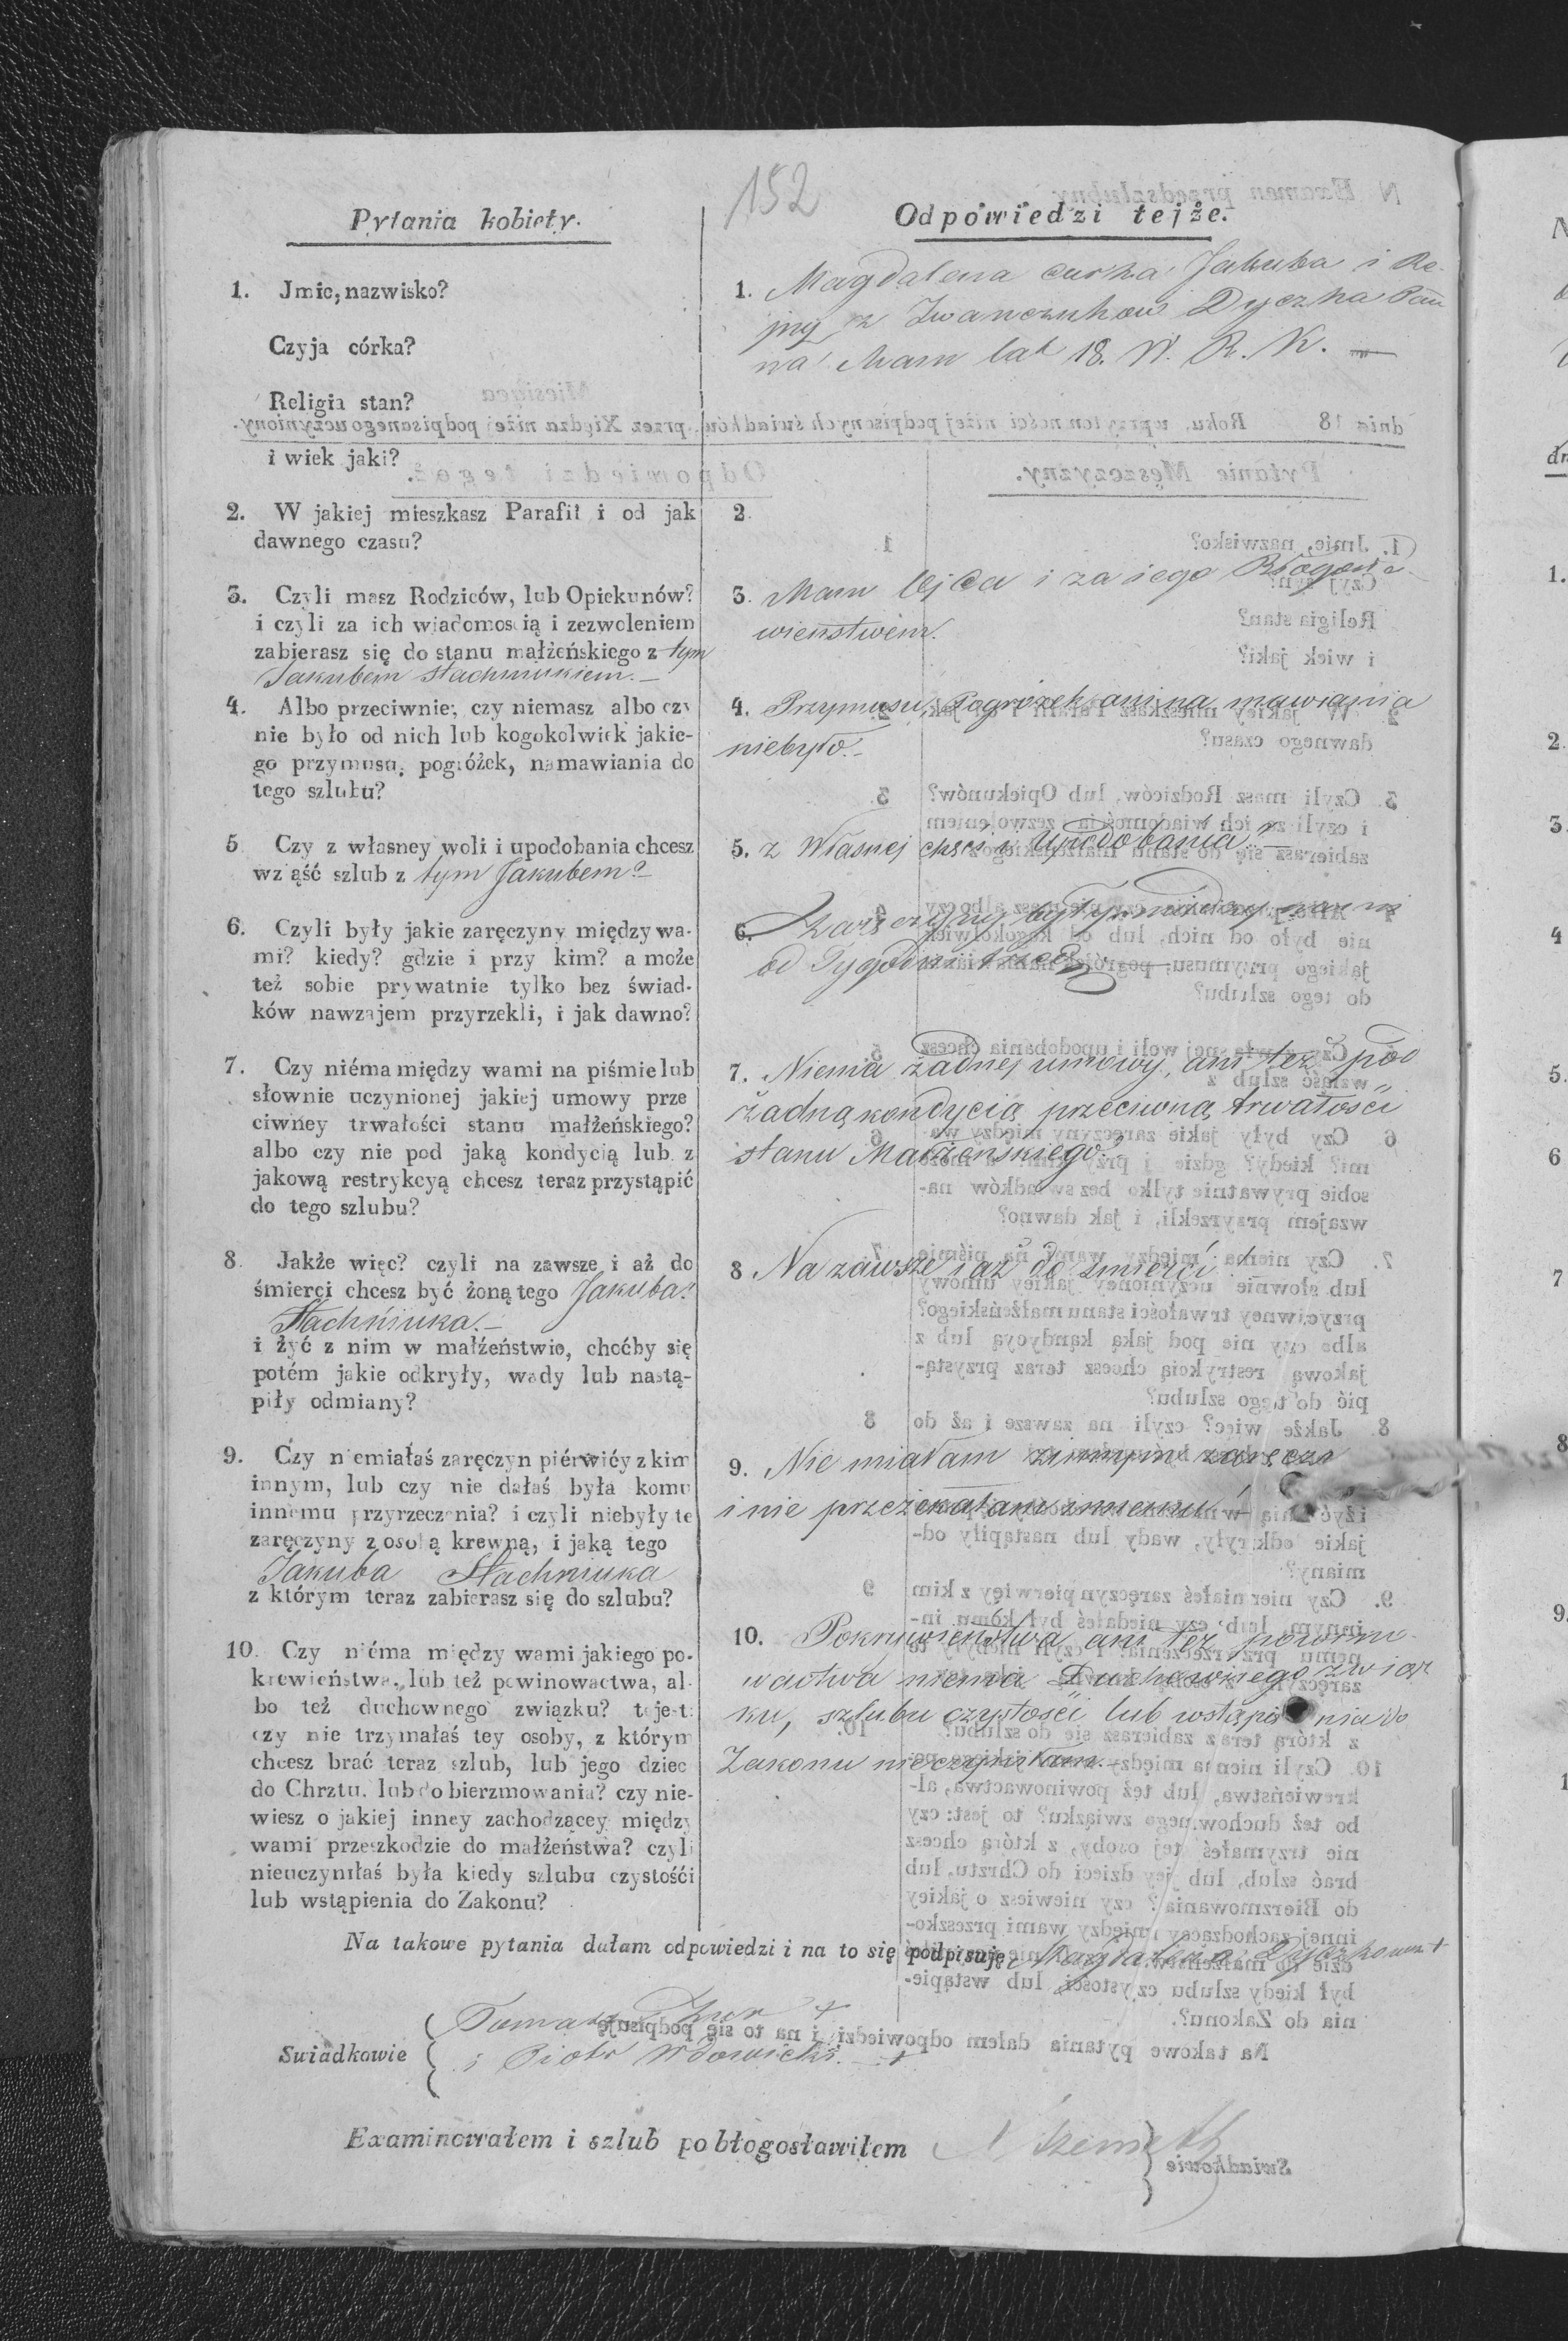 152
Pytania kobiety.
1. Jmie, nazwisko?
Czyja córka?
Religia stan?
i wiek jaki?
2. W jakiej mieszkasz Parafii i od jak
dawnego czasu?
3. Czyli masz Rodziców, lub Opiekunów?
i czyli za ich wiadomością i zezwoleniem
zabierasz się do stanu małżeńskiego z tym
Jakubem Stachniukiem. —
4. Albo przeciwnie, czy niemasz albo czy
nie było od nich lub kogokolwiek jakie-
go przymusu, pogróżek, namawiania do
tego szlubu?
5 Czy z własney woli i upodobania chcesz
wziąść szlub z tym Jakubem? —
6. Czyli były jakie zaręczyny między wa-
mi? kiedy? gdzie i przy kim? a może
też sobie prywatnie tylko bez świad-
ków nawzajem przyrzekli, i jak dawno?
7. Czy niéma między wami na piśmie lub
słownie uczynionej jakiej umowy prze
ciwney trwałości stanu małżeńskiego?
albo czy nie pod jaką kondycią lub z
jakową restrykcyą chcesz teraz przystąpić
do tego szlubu?
8. Jakże więc? czyli na zawsze i aż do
śmierci chcesz być żoną tego Jakuba
Stachniuka. —
i żyć z nim w małżeństwie, choćby się
potém jakie odkryły, wady lub nastą-
piły odmiany?
9. Czy niemiałaś zaręczyn piérwićy z kim
innym, lub czy nie dałaś była komu
innemu przyrzeczenia? i czyli niebyły te
zaręczyny z osobą krewną, i jaką tego
Jakuba Stachniuka
z którym teraz zabierasz się do szlubu?
10. Czy niéma między wami jakiego po-
krewieństwa, lub też powinowactwa, al-
bo też duchownego związku? to jest:
czy nie trzymałaś tey osoby, z którym
chcesz brać teraz szlub, lub jego dziec
do Chrztu, lub do bierzmowania? czy nie-
wiesz o jakiej inney zachodzącey między
wami przeszkodzie do małżeństwa? czyli
nieuczyniłaś była kiedy szlubu czystości
lub wstąpienia do Zakonu?
Odpowiedzi tejże.
1. Magdalena curka Jakuba i Re-
iny z Iwanczuków Dyczka Pan
na Mam lat 18. W. R. K. —
2.
3. Mam Ojca i za iego Błogosła
wieństwem.
4. Przymusu, Pogrózek ani na mawiania
niebyło. —
5. z Własnej chęci i Upodobania. —
6. Zaręczyny były między nami
od Tygodni trzech
7. Niema żadnej umowy, ani też pod
żadną kondycią przeciwną trwałosci
stanu Małżenskiego.
8 Na zawsze i aż do śmierci. —
9. Nie miałam z innym zaręczn
i nie przeżekałam innemu. —
10. Pokrywieństwa ani też powino
wactwa niema Duchownego zwiąż
ku, szlubu czystości lub wstąpie nia do
Zakonu nieczyniłam. —
Na takowe pytania dałam odpowiedzi i na to się podpisuję Magdalena +
Swiadkowie { Tomasz Żur +
i Piotr Wdowicki. +
Examinowałem i szlub pobłogosławiłem